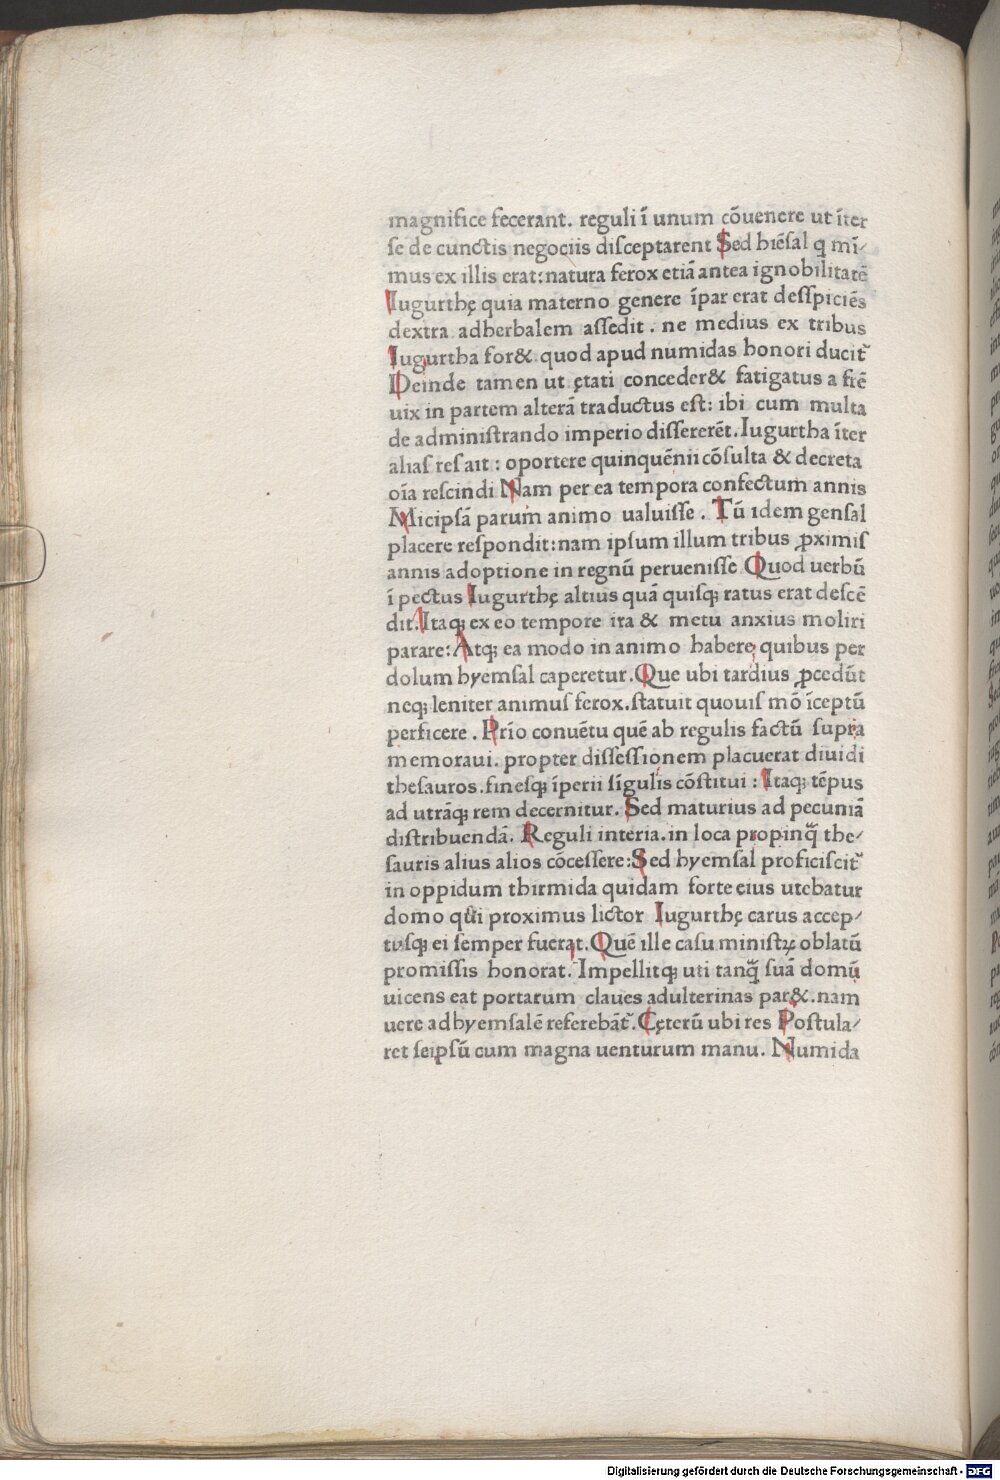 magnifice fecerant. reguli ī unum cōuenere ut īter
ſe de cunctis negociis diſceptarent Sed hiēſal q mī⸗
mus ex illis erat: natura ferox etiā antea ignobilitatē
Iugurthę quia materno genere īpar erat deſſpiciēs
dextra adherbalem aſſedit. ne medius ex tribus
Iugurtha for& quod apud numidas honori ducit᷑
Deinde tamen ut ętati conceder& fatigatus a frē
uix in partem alterā traductus eſt: ibi cum multa
de adminiſtrando imperio diſſererēt. Iugurtha īter
aliaſ reſ ait: oportere quinquēnii cōſulta & decreta
oīa reſcindi Nam per ea tempora confectum annis
Micipſā parum animo ualuiſſe. Tū idem genſal
placere reſpondit: nam ipſum illum tribus ꝓximiſ
annis adoptione in regnū perueniſſe Quod uerbū
ī pectus Iugurthę altius quā quiſꝗ ratus erat deſcē
dit. Itaqꝫ ex eo tempore ira & metu anxius moliri
parare: Atqꝫ ea modo in animo habere quibus per
dolum hyemſal caperetur. Que ubi tardius ꝓcedūt
neqꝫ leniter animuſ ferox. ſtatuit quouiſ mō īceptū
perficere. Prīo conuētu quē ab regulis factū ſupra
memoraui. propter diſſeſſionem placuerat diuidi
theſauros. fineſqꝫ īperii ſīgulis cōſtitui: Itaqꝫ tēpus
ad utrāqꝫ rem decernitur. Sed maturius ad pecuniā
diſtribuendā. Reguli interia. in loca propinq̄ the⸗
ſauris alius alios cōceſſere: Sed hyemſal proficiſcit᷑
in oppidum thirmida quidam forte eius utebatur
domo qui proximus lictor Iugurthę carus accep⸗
tuſqꝫ ei ſemper fuerat. Quē ille caſu miniſtꝝ oblatū
promiſſis honorat. Impellitqꝫ uti tanq̄ ſuā domū
uicens eat portarum claues adulterinas par&. nam
uere ad hyemſalē referebāt᷑. Cęterū ubi res Poſtula⸗
ret ſeipſū cum magna uenturum manu. Numida
Digitalisierung gefördert durch die Deutsche Forschungsgemeinschaft - DFG